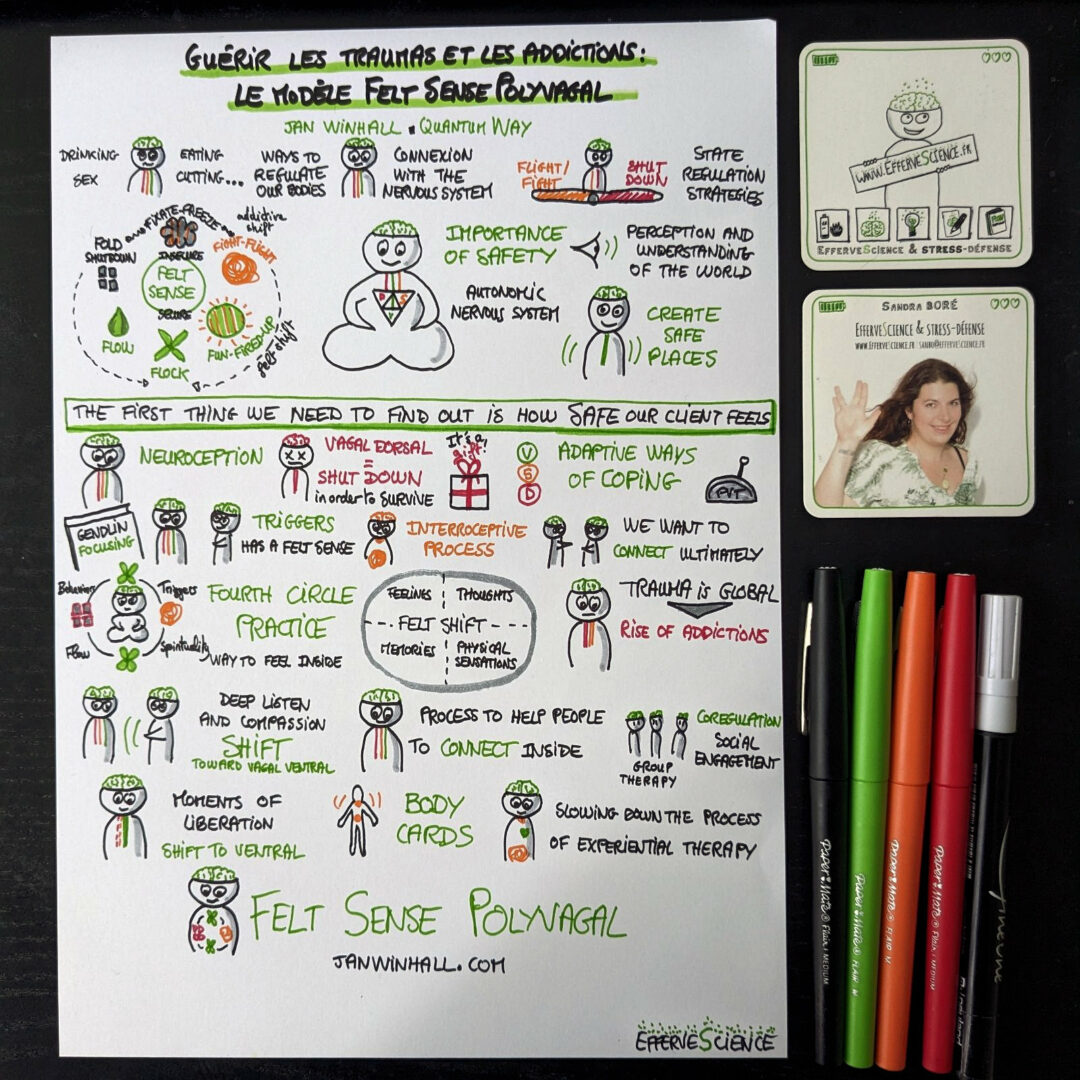 GUÉRIR LES TRAUMAS ET LES ADDICTIONS:
LE MODÈLE FELT SENSE POLYVAGAL
JAN WINHALL. QUANTUM WAY
DRINKING
SEX
EATING
CUTTING...
WAYS TO
REGULATE
OUR BODIES
CONNEXION
WITH THE
NERVOUS SYSTEM
FLIGHT/
FIGHT
SHUT
DOWN
STATE
REGULATION
STRATEGIES
FIXATE-FREEZE
addictive
shift
FOLD
SHUTDOWN
INSECURE
FIGHT-FLIGHT
FELT
SENSE
SECURE
FLOW
FLOCK
FUN-FIRED UP
felt shift
IMPORTANCE
OF SAFETY
AUTONOMIC
NERVOUS SYSTEM
D S
V
PERCEPTION AND
UNDERSTANDING
OF THE WORLD
CREATE
SAFE
PLACES
THE FIRST THING WE NEED TO FIND OUT IS HOW SAFE OUR CLIENT FEELS
NEUROCEPTION
VAGAL DORSAL
=
SHUT DOWN
in order to SURVIVE
It's a
gift!
V
S
D
ADAPTIVE WAYS
OF COPING
PVT
GENDLIN
FOCUSING
TRIGGERS
HAS A FELT SENSE
INTERROCEPTIVE
PROCESS
WE WANT TO
CONNECT ULTIMATELY
Behaviors
Triggers
Flow
Spirituality
FOURTH CIRCLE
PRACTICE
WAY TO FEEL INSIDE
FEELINGS
THOUGHTS
FELT SHIFT
MEMORIES
PHYSICAL
SENSATIONS
TRAUMA is GLOBAL
RISE OF ADDICTIONS
DEEP LISTEN
AND COMPASSION
SHIFT
TOWARD VAGAL VENTRAL
PROCESS TO HELP PEOPLE
TO CONNECT INSIDE
GROUP
THERAPY
COREGULATION
SOCIAL
ENGAGEMENT
MOMENTS OF
LIBERATION
SHIFT TO VENTRAL
BODY
CARDS
SLOWING DOWN THE PROCESS
OF EXPERIENTIAL THERAPY
FELT SENSE POLYVAGAL
JANWINHALL.COM
EFFERVESCIENCE
WWW.EFFERVESCIENCE.FR
EFFERVESCIENCE & STRESS-DÉFENSE
SANDRA BORÉ
EFFERVESCIENCE & STRESS-DÉFENSE
WWW.EFFERVESCIENCE.FR SANBO@EFFERVESCIENCE.FR
PAPER MATE FLAIR MEDIUM
PAPER MATE FLAIR M
PAPER MATE FLAIR M
PAPER MATE FLAIR MEDIUM